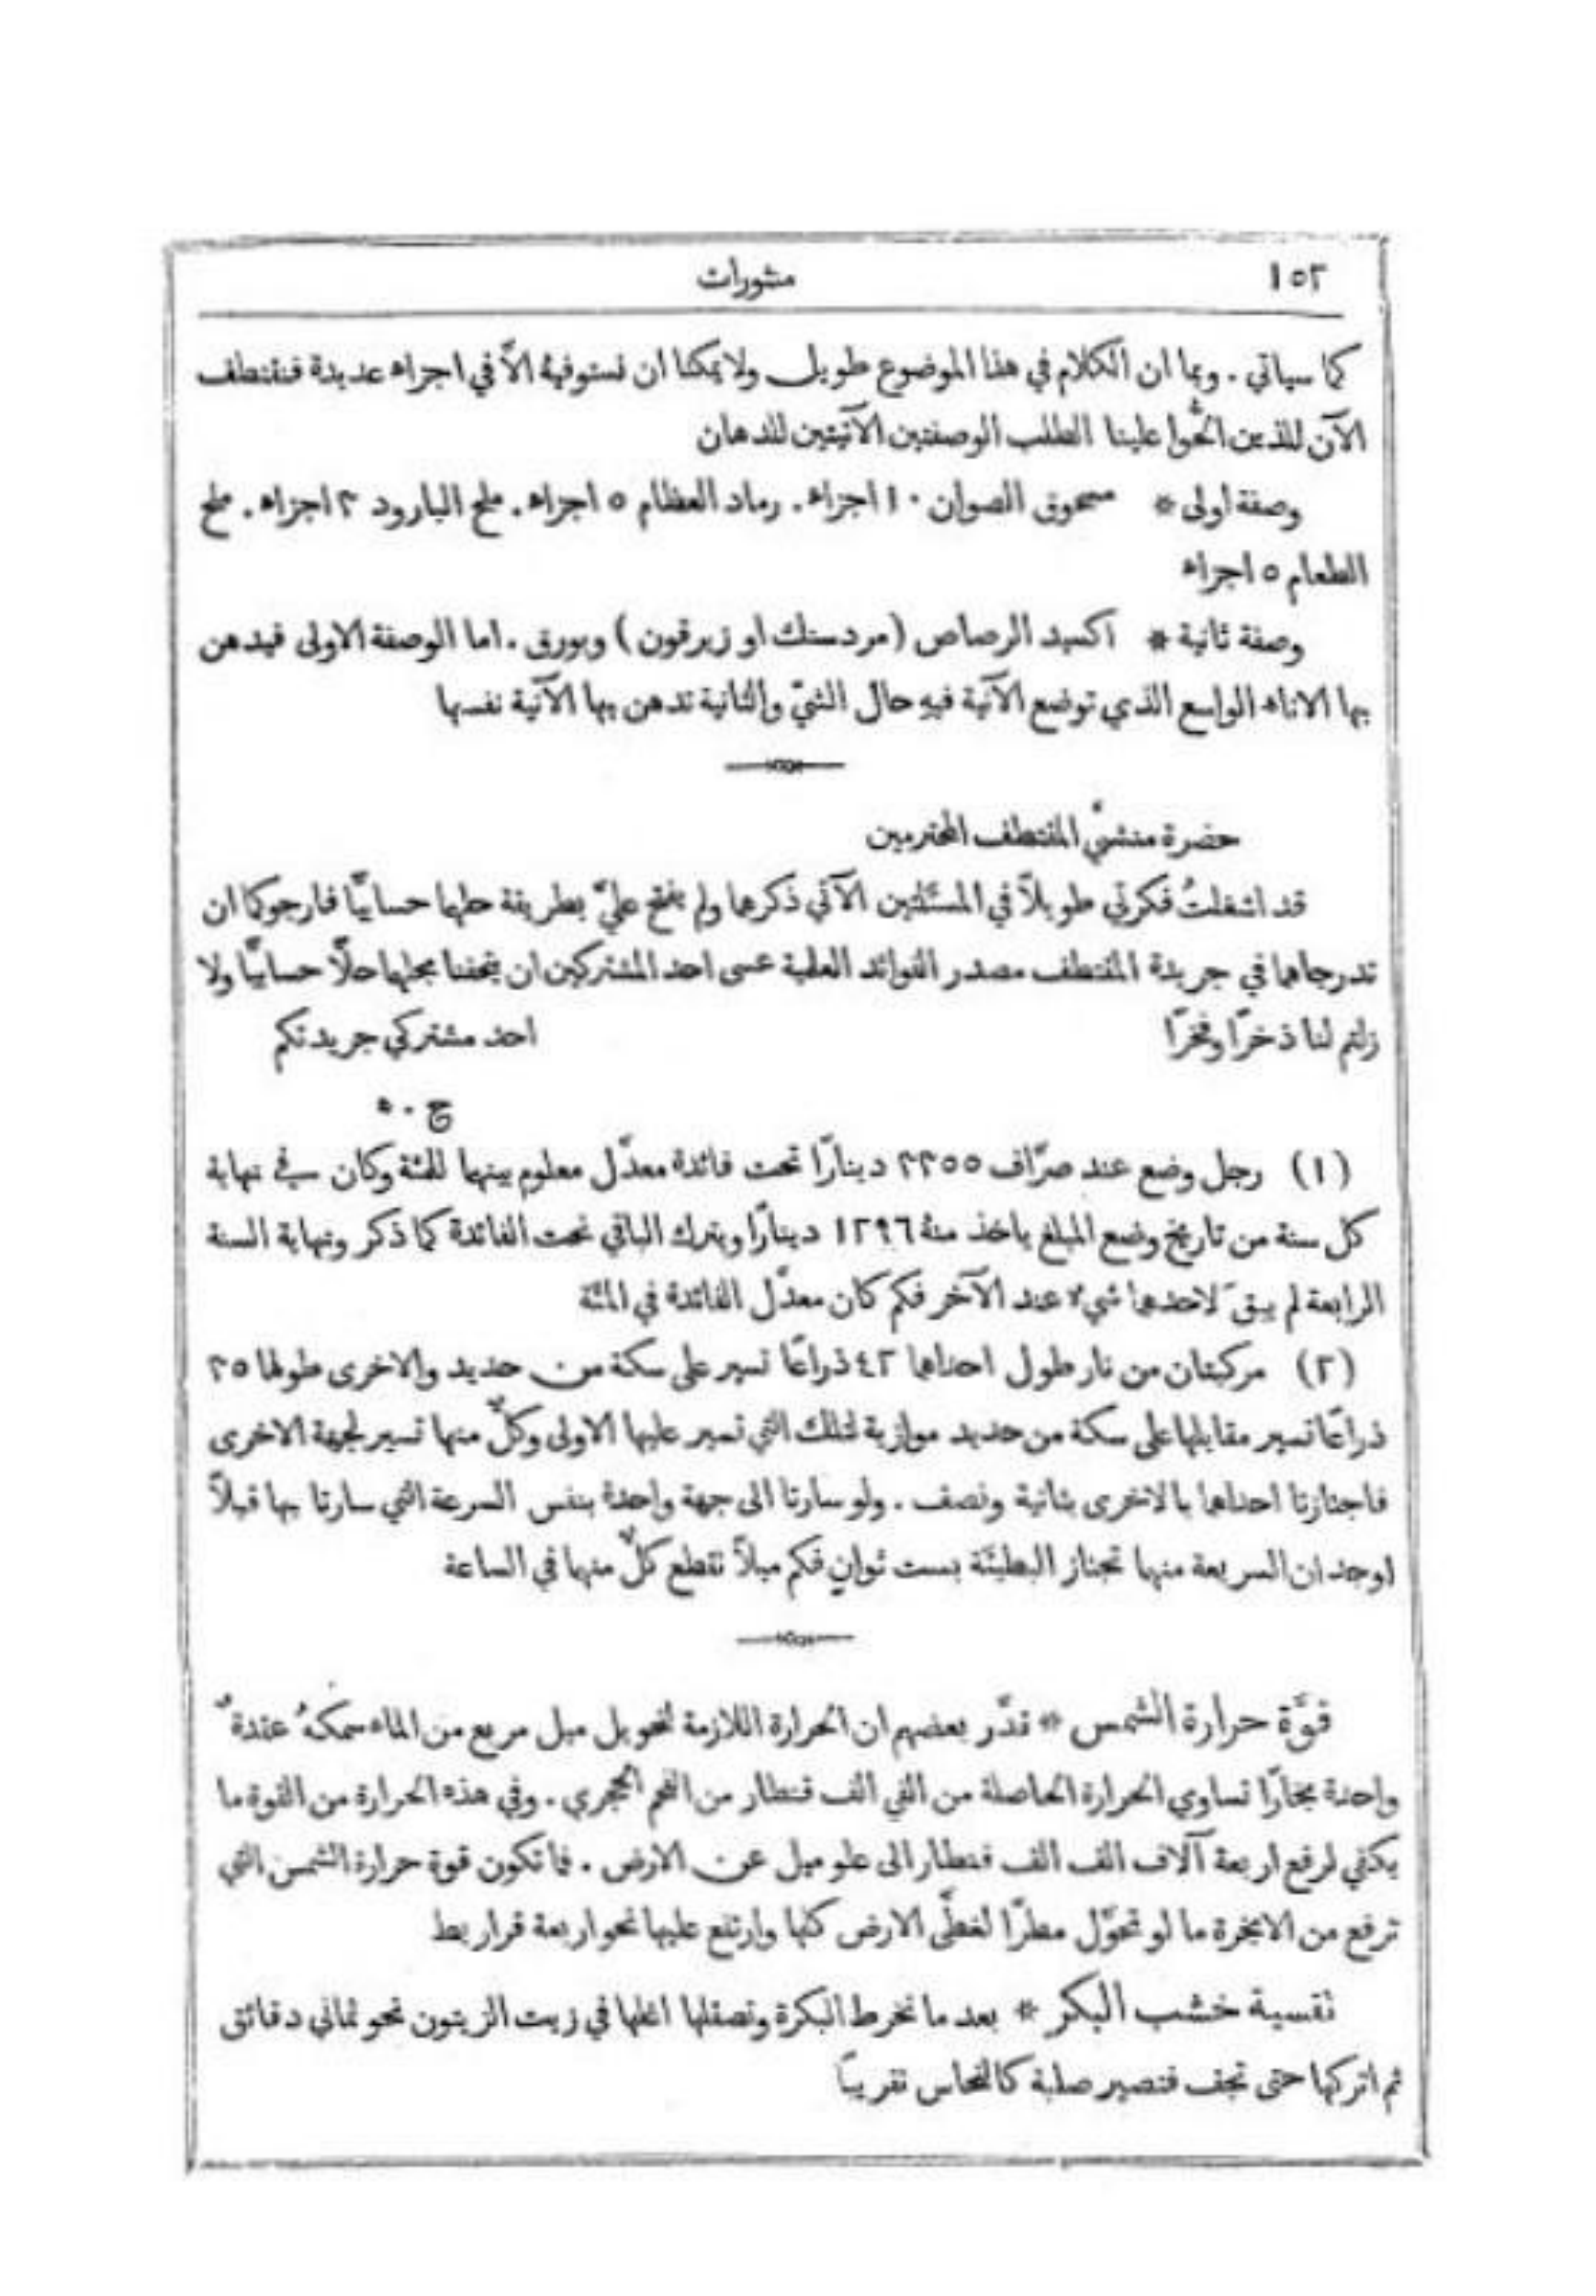 ١٥٢
منثورات
كما سياتي . وبما ان الكلام في هذا الموضوع طويل ولا يمكنا ان نستوفيهُ الّا في اجزاء عديدة فنقتطف
الآن للذين الحُّوا علينا الطلب الوصفتين الآتيتين للدهان
وصفة اولى * مسحوق الصوان ١٠ اجزاء . رماد العظام ٥ اجزاء . ملح البارود ٣ اجزاء . ملح
الطعام ٥ اجزاء
وصفة ثانية * اكسيد الرصاص (مردسنك او زيرقون) وبورق . اما الوصفة الاولى فيدهن
بها الاناء الواسع الذي توضع الآنية فيهِ حال الشيّ والثانية تدهن بها الآنية نفسها
حضرة منشئَي المقتطف المحترمين
قد اشغلتُ فكرتي طويلاً في المسئلتين الآتي ذكرها ولم يفتح عليَّ بطريقة حلها حسابيًّا فارجوكما ان
تدرجاهما في جريدة المقتطف مصدر الفوائد العلمية عسى احد المشتركين ان يتحفنا بحلها حلًّا حسابيًّا ولا
زلتم لنا ذخرًا وفخرًا
احد مشتركي جريدتكم
ج . ه
(١) رجل وضع عند صرَّاف ٣٣٥٥ دينارًا تحت فائدة معدَّل معلوم بينهما للمئة وكان في نهاية
كل سنة من تاريخ وضع المبلغ ياخذ منهُ ١٢٩٦ دينارًا ويترك الباقي تحت الفائدة كما ذكر ونهاية السنة
الرابعة لم يبقَ لاحدهما شيءٌ عند الآخر فكم كان معدَّل الفائدة في المئة
(٢) مركبتان من نار طول احداهما ٤٢ ذراعًا تسير على سكة من حديد والاخرى طولها ٣٥
ذراعًا تسير مقابلها على سكة من حديد موازية لتلك التي تسير عليها الاولى وكلٌّ منها تسير لجهة الاخرى
فاجتازتا احداهما بالاخرى بثانية ونصف . ولو سارتا الى جهة واحدة بنفس السرعة التي سارتا بها قبلاً
لوجد ان السريعة منها تجتاز البطيئَة بست ثوانٍ فكم ميلاً تقطع كلٌّ منهما في الساعة
قوَّة حرارة الشمس * قدَّر بعضهم ان الحرارة اللازمة لتحويل ميل مربع من الماء سمكهُ عقدةٌ
واحدة بخارًا تساوي الحرارة الحاصلة من الفي الف قنطار من الفحم الحجري . وفي هذه الحرارة من القوة ما
يكفي لرفع اربعة آلاف الف الف قنطار الى علو ميل عن الارض . فما تكون قوة حرارة الشمس التي
ترفع من الابخرة ما لو تحوَّل مطرًا لغطَّى الارض كلها وارتفع عليها نحو اربعة قراريط
تقسية خشب البكر * بعد ما تخرط البكرة وتصقلها اغلها في زيت الزيتون نحو ثماني دقائق
ثم اتركها حتى تجف فتصير صلبة كالنحاس تقريبًا